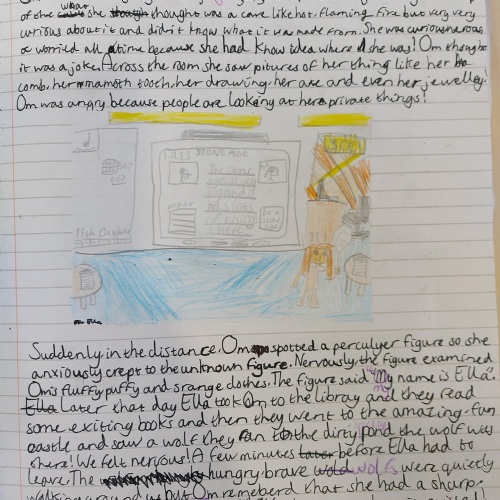 of she what she thought was a cave like hot, flaming fire but very very
curious about it and didn't know what it was made from. She was curious nervous
or worried all atime because she had know idea where she was! Om thought
it was a joke. Across the room she saw pitures of her thing like her
comb, her mamoth tooth, her drawing, her axe and even her jewelley.
Om was angry because people are looking at here private things!
STONE AGE
The stone
has lots
11th October
Ella
Suddenly, in the distance, Om spotted a perculyer figure so she
anxiously crept to the unknown figure. Nervously, the figure examined
Om's fluffy puffy and srange clothes. The figure said "My name is Ella".
my
Ella Later that day Ella took Om to the libray and they read
some exiting books and then they went to the amazing, fun
castle and saw a wolf they ran to the dirty pond the wolf was
there! We felt nervous! A few minutes later before Ella had to
leave. The hungry brave wold wolfs were quietly
walking around but Om remeberd that she had a sharp,